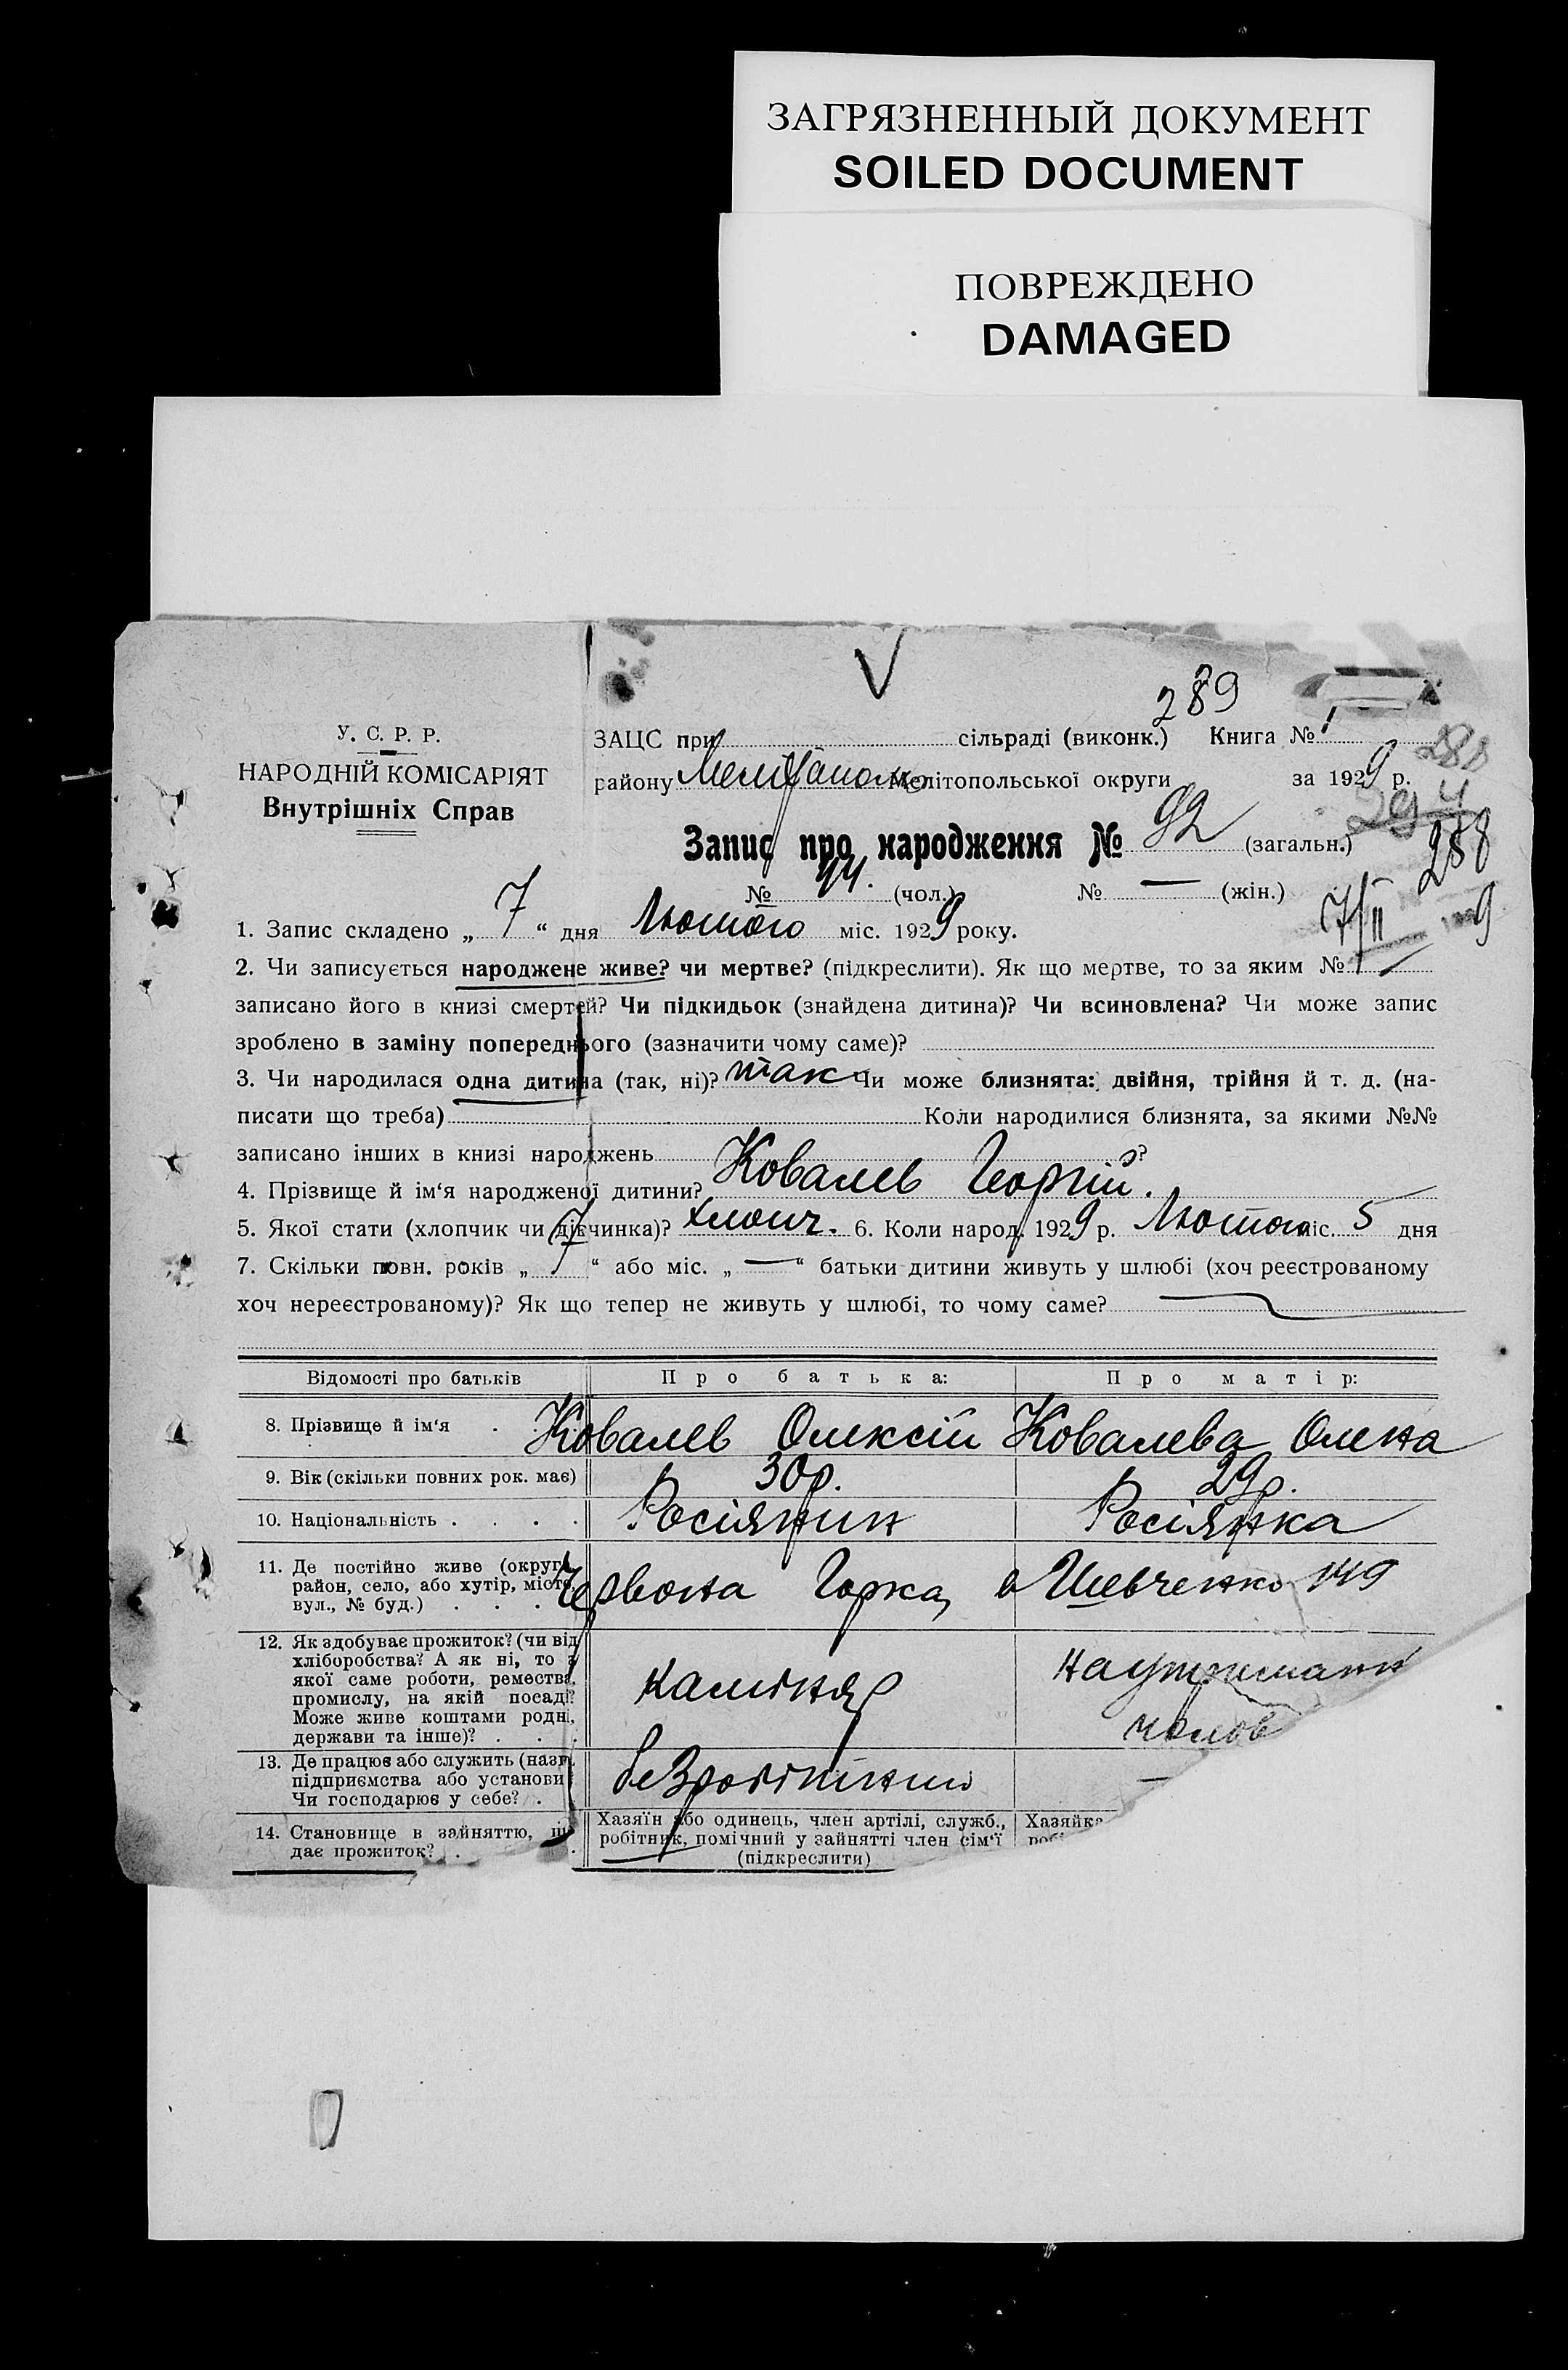 ЗАГРЯЗНЕННЫЙ ДОКУМЕНТ
SOILED DOCUMENT
ПОВРЕЖДЕНО
DAMAGED
289
У. С. Р. Р.
НАРОДНІЙ КОМІСАРІЯТ
Внутрішніх Справ
ЗАЦС при сільраді (виконк.) Книга № 1
району Мелітополь Мелітопольської округи за 1929 р.
288
294
288
Запис про народження № 92 (загальн.)
№ 44. (чол.) № — (жін.)
7/II 9
1. Запис складено „ 7 “ дня Лютого міс. 1929 року.
2. Чи записується народжене живе? чи мертве? (підкреслити). Як що мертве, то за яким №
записано його в книзі смертей? Чи підкидьок (знайдена дитина)? Чи всиновлена? Чи може запис
зроблено в заміну попереднього (зазначити чому саме)?
3. Чи народилася одна дитина (так, ні)? так Чи може близнята: двійня, трійня й т. д. (на-
писати що треба) Коли народилися близнята, за якими №№
записано інших в книзі народжень ?
4. Прізвище й ім‘я народженої дитини? Ковалев Георгій.
5. Якої стати (хлопчик чи дівчинка)? хлопч. 6. Коли народ. 1929 р. Лютого міс. 5 дня
7. Скільки повн. років „ 7 “ або міс. „ — “ батьки дитини живуть у шлюбі (хоч реєстрованому
хоч нереєстрованому)? Як що тепер не живуть у шлюбі, то чому саме?
Відомості про батьків Про батька: Про матір:
8. Прізвище й ім‘я . Ковалев Олексій Ковалева Олена
9. Вік (скільки повних рок. має) 30р. 29р.
10. Національність . . . . Росіянин Росіянка
11. Де постійно живе (округа,
район, село, або хутір, місто,
вул., № буд.) . . . Червона Горка, в Шевченко 149
12. Як здобуває прожиток? (чи від
хліборобства? А як ні, то з
якої саме роботи, ремества,
промислу, на якій посаді?
Може живе коштами родні,
держави та інше)? . . . каміняр на утриманні
чолов
13. Де працює або служить (назв.
підприємства або установи
Чи господарює у себе? . безробітний —
14. Становище в зайняттю, що
дає прожиток? . .
Хазяїн або одинець, член артілі, служб.,
робітник, помічний у зайнятті член сім‘ї
(підкреслити)
Хазяйка